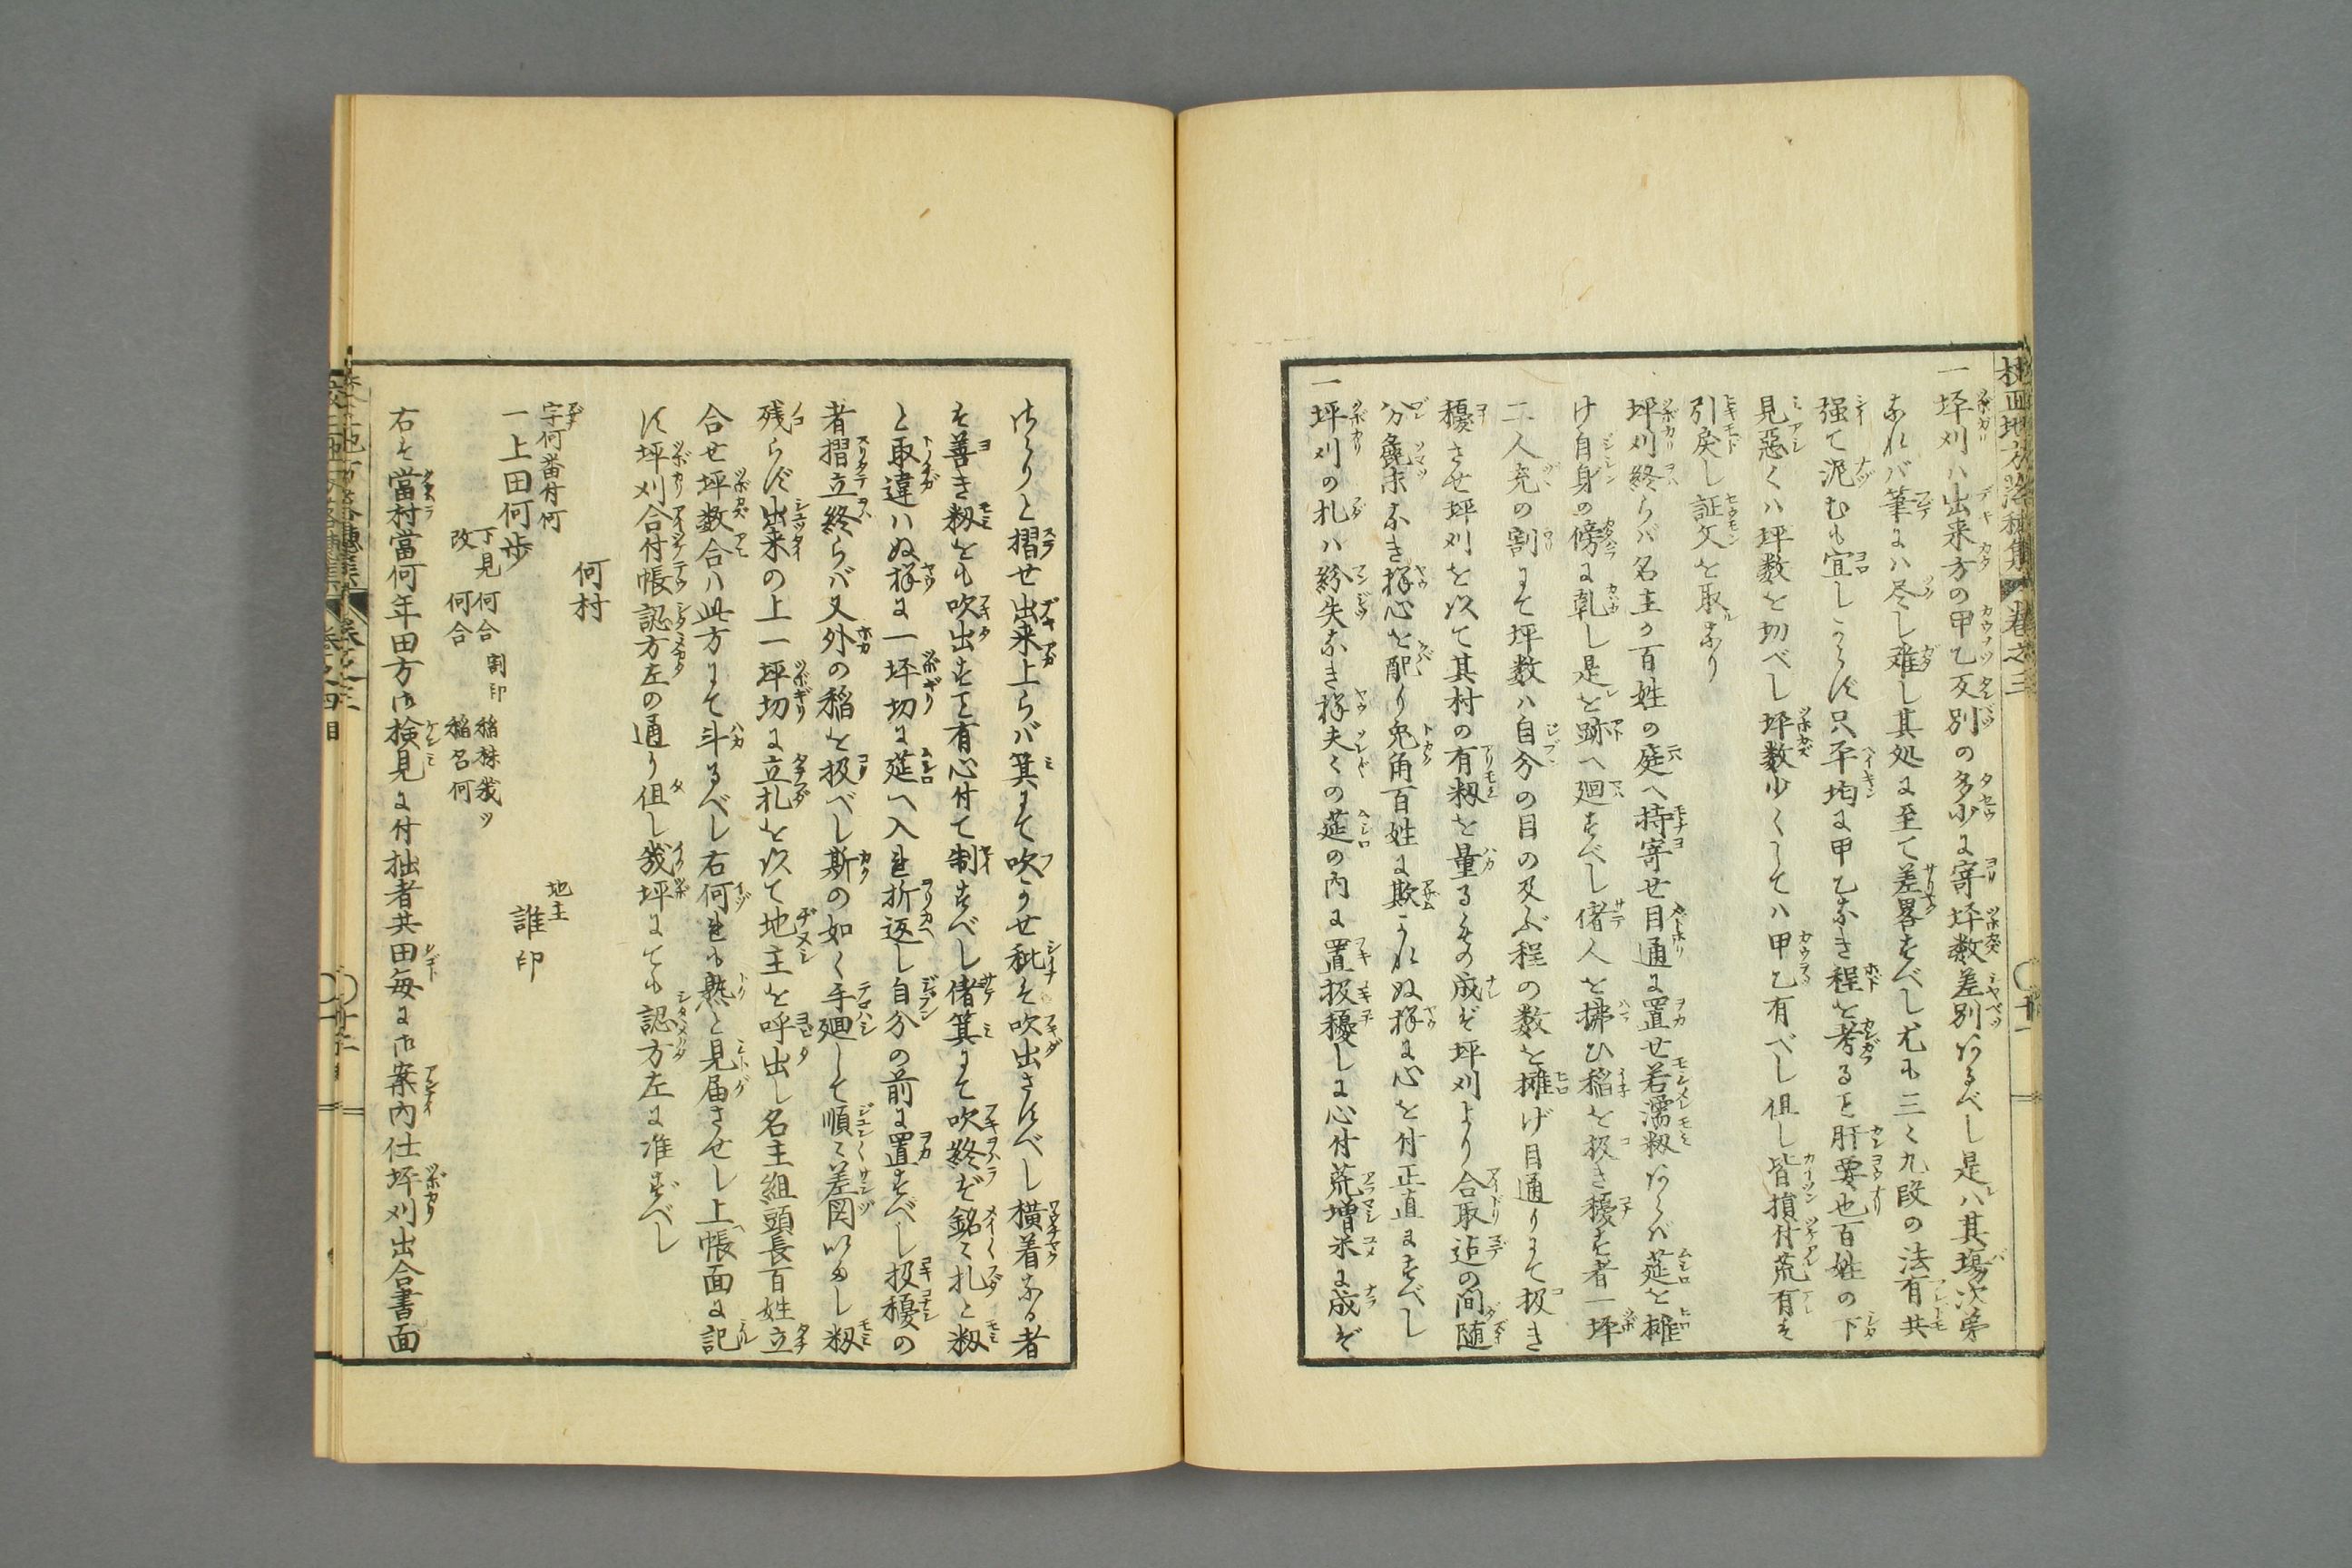 校正地方落穂集 巻之三
一坪刈ハ出来方の甲乙反別の多少に寄坪数差別あるべし是ハ其場次第
なれバ筆にハ尽し難し其処に至て差畧すべし尤も三々九段の法有共
強て泥むも宜しからず只平均に甲乙なき程を考るを肝要也百姓の下
見悪くハ坪数を切べし坪数少くしてハ甲乙有べし但し皆損付荒有を
引戻し証文を取なり
坪刈終らバ名主か百姓の庭へ持寄せ目通に置せ若濡籾あらバ莚を擁
け自身の傍に乾し是を跡へ廻すべし偖人を拂ひ稲を扱き穣す者一坪
二人充の割にて坪数ハ自分の目の及ぶ程の数を擁げ目通りにて扱き
穣させ坪刈を以て其村の有籾を量るもの成ぞ坪刈より合取迠の间随
分麁末なき様心を配り兎角百姓に欺かれぬ様に心を付正直にすべし
一坪刈の札ハ紛失なき様夫々の莚の内に置扱穣しに心付荒増米に成ぞ
はらりと摺せ出来上らバ箕にて吹かせ秕を吹出さすべし横着なる者
を善き籾をも吹出すを有心付て制すべし偖箕にて吹終ぞ銘々札と籾
と取違ハぬ様に一坪切に莚へ入を折返し自分の前に置すべし扱穣の
者摺立終らバ又外の稲を扱べし斯の如く手廻して順々差図いたし籾
残らず出来の上一坪切に立札を以て地主を呼出し名主組頭長百姓立
合せ坪数合ハ此方にて斗るべし右何を も熟と見届させし上帳面に記
す坪刈合付帳認方左の通り但し幾坪にても認方左に准ずべし
何村
字何番付何
一上田何歩
地主
誰印
下見 何合 割印 稲株幾ツ
改 何合 稲名何
右を當村當何年田方御検見に付拙者共田毎に御案内仕坪刈出合書面